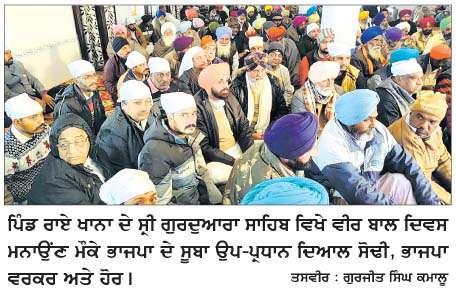 ਪਿੰਡ ਰਾਏ ਖਾਨਾ ਦੇ ਸ੍ਰੀ ਗੁਰਦੁਆਰਾ ਸਾਹਿਬ ਵਿਖੇ ਵੀਰ ਬਾਲ ਦਿਵਸ
ਮਨਾਉਂਣ ਮੌਕੇ ਭਾਜਪਾ ਦੇ ਸੂਬਾ ਉਪ-ਪ੍ਰਧਾਨ ਦਿਆਲ ਸੋਢੀ, ਭਾਜਪਾ
ਵਰਕਰ ਅਤੇ ਹੋਰ। ਤਸਵੀਰ : ਗੁਰਜੀਤ ਸਿੰਘ ਕਮਾਲੂ